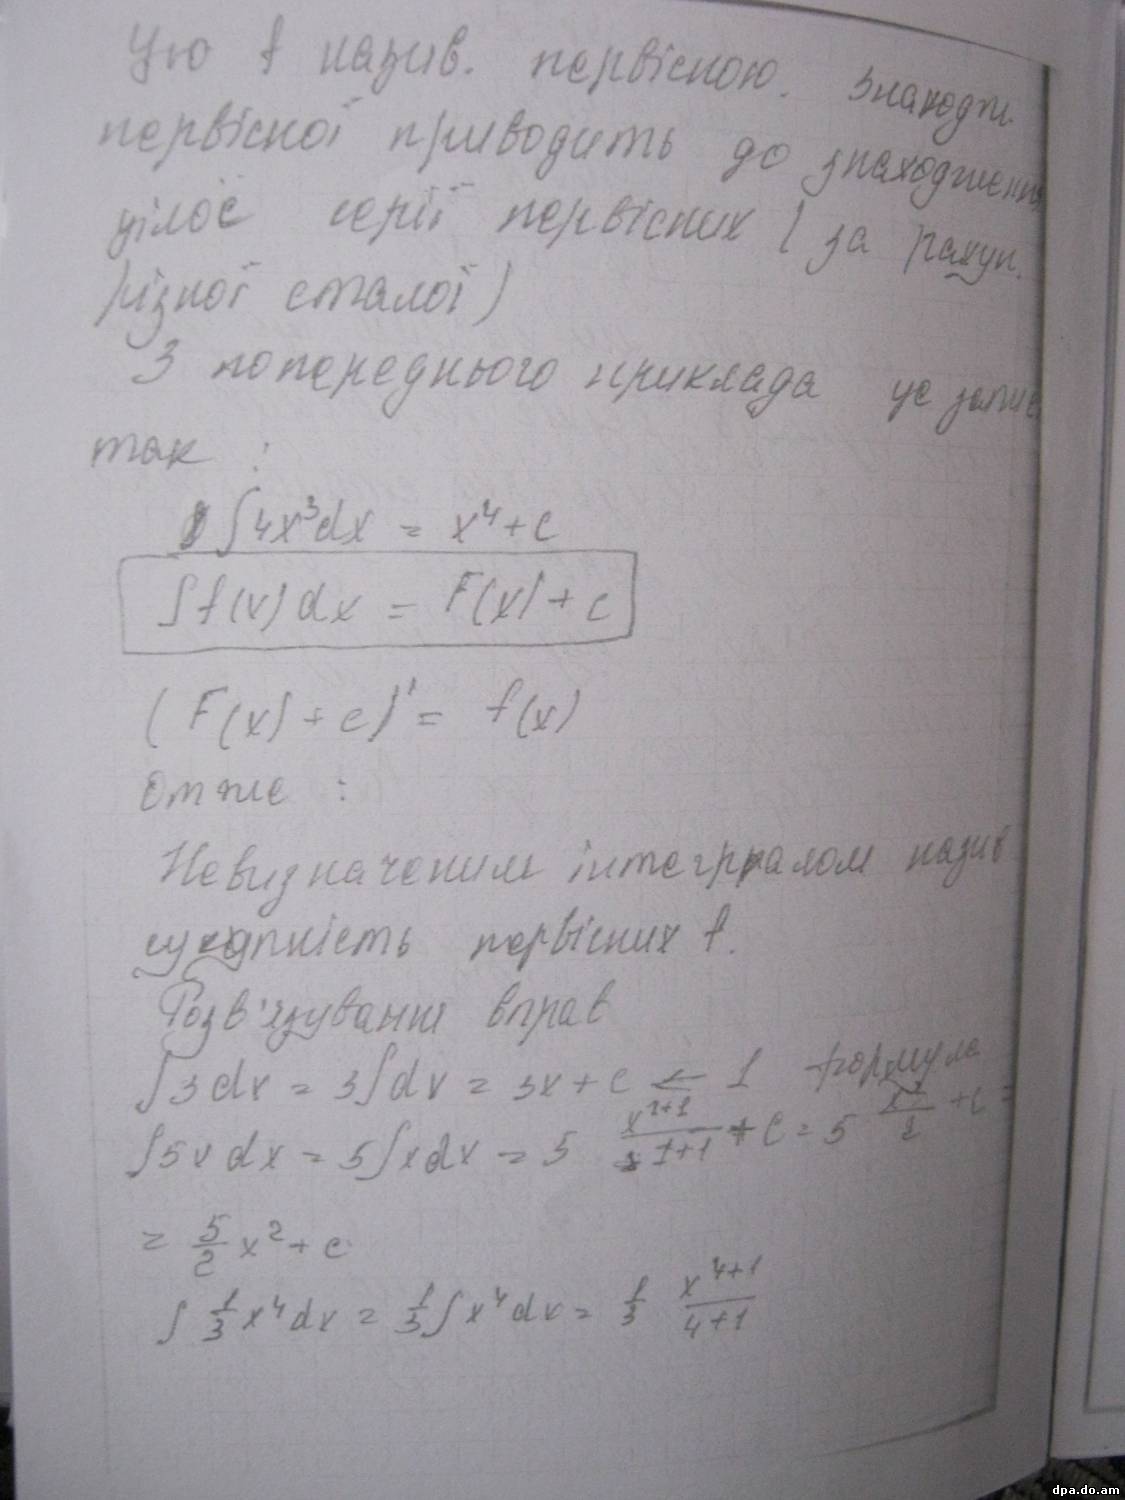 Цю f назив. первісною. Знаходж.
первісної приводить до знаходження
цілоє серії первісних (за рахун.
різної сталої)
З попереднього приклада це запис
так :
∫4x³dx = x⁴+c
∫f(x)dx = F(x)+c
(F(x)+c)' = f(x)
Отже :
Невизначеним інтегралом назив
сукупність первісних f.
Розв'язування вправ
∫3dx = 3∫dx = 3x+c ← 1 формула
∫5xdx = 5∫xdx = 5 x¹⁺¹/1+1 + C = 5 x²/2 + c =
= 5/2 x² + c
∫ 1/3 x⁴dx = 1/3 ∫x⁴dx = 1/3 x⁴⁺¹/4+1
dpa.do.am